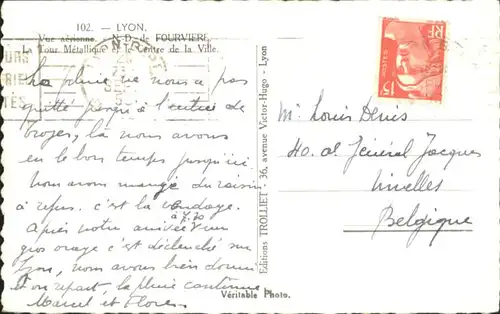 102. — LYON.
Vue aérienne. — N.-D. de FOURVIÈRE
La Tour Métallique et le Centre de la Ville.
La pluie ne nous a pas
quitté jusqu'à l'entrée de
Troyes, là nous avons
eu le bon temps jusqu'ici
Nous avons mangé du raisin
à refus. c'est la vendage.
à 7.30
après notre arrivée un
gros orage c'est déclenché sur
Lyon, nous avons bien dormi
et on repart, la pluie continue
Marcel et Flore
Editions TROLLIET - 36, avenue Victor-Hugo - Lyon
Véritable Photo.
POSTES
RF
15F
M. Louis Denis
40. al Général Jacques
Ixelles
Belgique